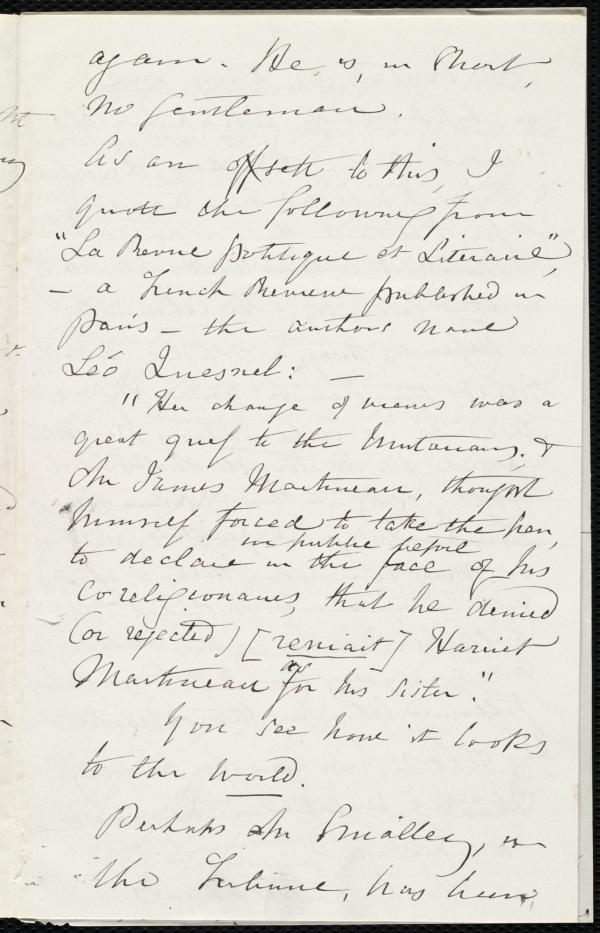 again. He is, in short,
no gentleman.
As an offsett to this, I
quote the following from
"La Revue politique et Literaire",
– a French Review published in
Paris – the authors name
Léo Quesnel: –
"Her change of views was a
great grief to the Unitarians, &
Mr James Martineau, thought
himself forced to take the pen,
to declare in the face of his
in public before
coreligionaries, that he denied
(or rejected) [reniait] Harriet
Martineau for his sister."
as
You see how it looks
to the world.
Perhaps Mr Smalley, in
the Tribune, has been